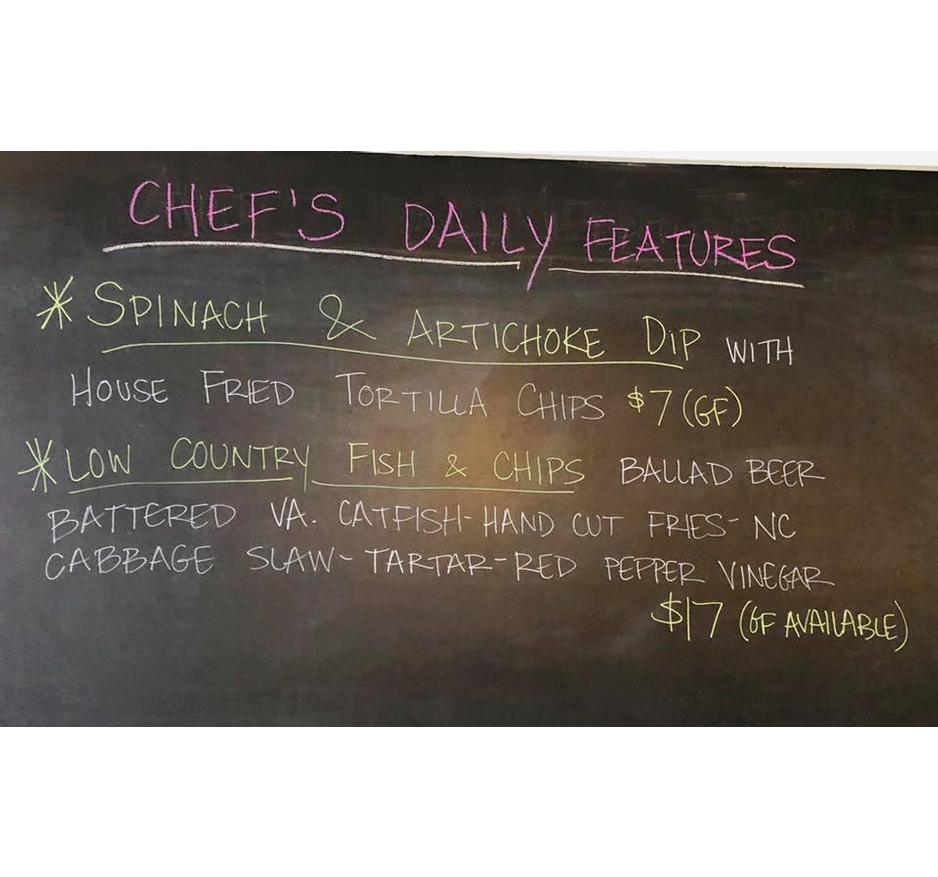 CHEF'S DAILY FEATURES
* SPINACH & ARTICHOKE DIP WITH
HOUSE FRIED TORTILLA CHIPS $7 (GF)
* LOW COUNTRY FISH & CHIPS BALLAD BEER
BATTERED VA. CATFISH - HAND CUT FRIES - NC
CABBAGE SLAW - TARTAR - RED PEPPER VINEGAR
$17 (GF AVAILABLE)